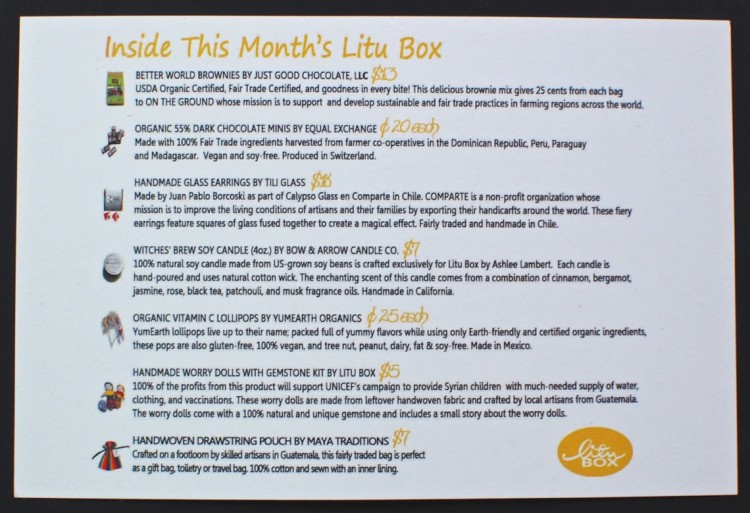 Inside This Month's Litu Box
BETTER WORLD BROWNIES BY JUST GOOD CHOCOLATE, LLC $13
USDA Organic Certified, Fair Trade Certified, and goodness in every bite! This delicious brownie mix gives 25 cents from each bag
to ON THE GROUND whose mission is to support and develop sustainable and fair trade practices in farming regions across the world.
ORGANIC 55% DARK CHOCOLATE MINIS BY EQUAL EXCHANGE ¢20 each
Made with 100% Fair Trade ingredients harvested from farmer co-operatives in the Dominican Republic, Peru, Paraguay
and Madagascar. Vegan and soy-free. Produced in Switzerland.
HANDMADE GLASS EARRINGS BY TILI GLASS $16
Made by Juan Pablo Borcoski as part of Calypso Glass en Comparte in Chile. COMPARTE is a non-profit organization whose
mission is to improve the living conditions of artisans and their families by exporting their handicarfts around the world. These fiery
earrings feature squares of glass fused together to create a magical effect. Fairly traded and handmade in Chile.
WITCHES' BREW SOY CANDLE (4oz.) BY BOW & ARROW CANDLE CO. $7
100% natural soy candle made from US-grown soy beans is crafted exclusively for Litu Box by Ashlee Lambert. Each candle is
hand-poured and uses natural cotton wick. The enchanting scent of this candle comes from a combination of cinnamon, bergamot,
jasmine, rose, black tea, patchouli, and musk fragrance oils. Handmade in California.
ORGANIC VITAMIN C LOLLIPOPS BY YUMEARTH ORGANICS ¢25 each
YumEarth lollipops live up to their name; packed full of yummy flavors while using only Earth-friendly and certified organic ingredients,
these pops are also gluten-free, 100% vegan, and tree nut, peanut, dairy, fat & soy-free. Made in Mexico.
HANDMADE WORRY DOLLS WITH GEMSTONE KIT BY LITU BOX $5
100% of the profits from this product will support UNICEF's campaign to provide Syrian children with much-needed supply of water,
clothing, and vaccinations. These worry dolls are made from leftover handwoven fabric and crafted by local artisans from Guatemala.
The worry dolls come with a 100% natural and unique gemstone and includes a small story about the worry dolls.
HANDWOVEN DRAWSTRING POUCH BY MAYA TRADITIONS $7
Crafted on a footloom by skilled artisans in Guatemala, this fairly traded bag is perfect
as a gift bag, toiletry or travel bag. 100% cotton and sewn with an inner lining.
litu
BOX